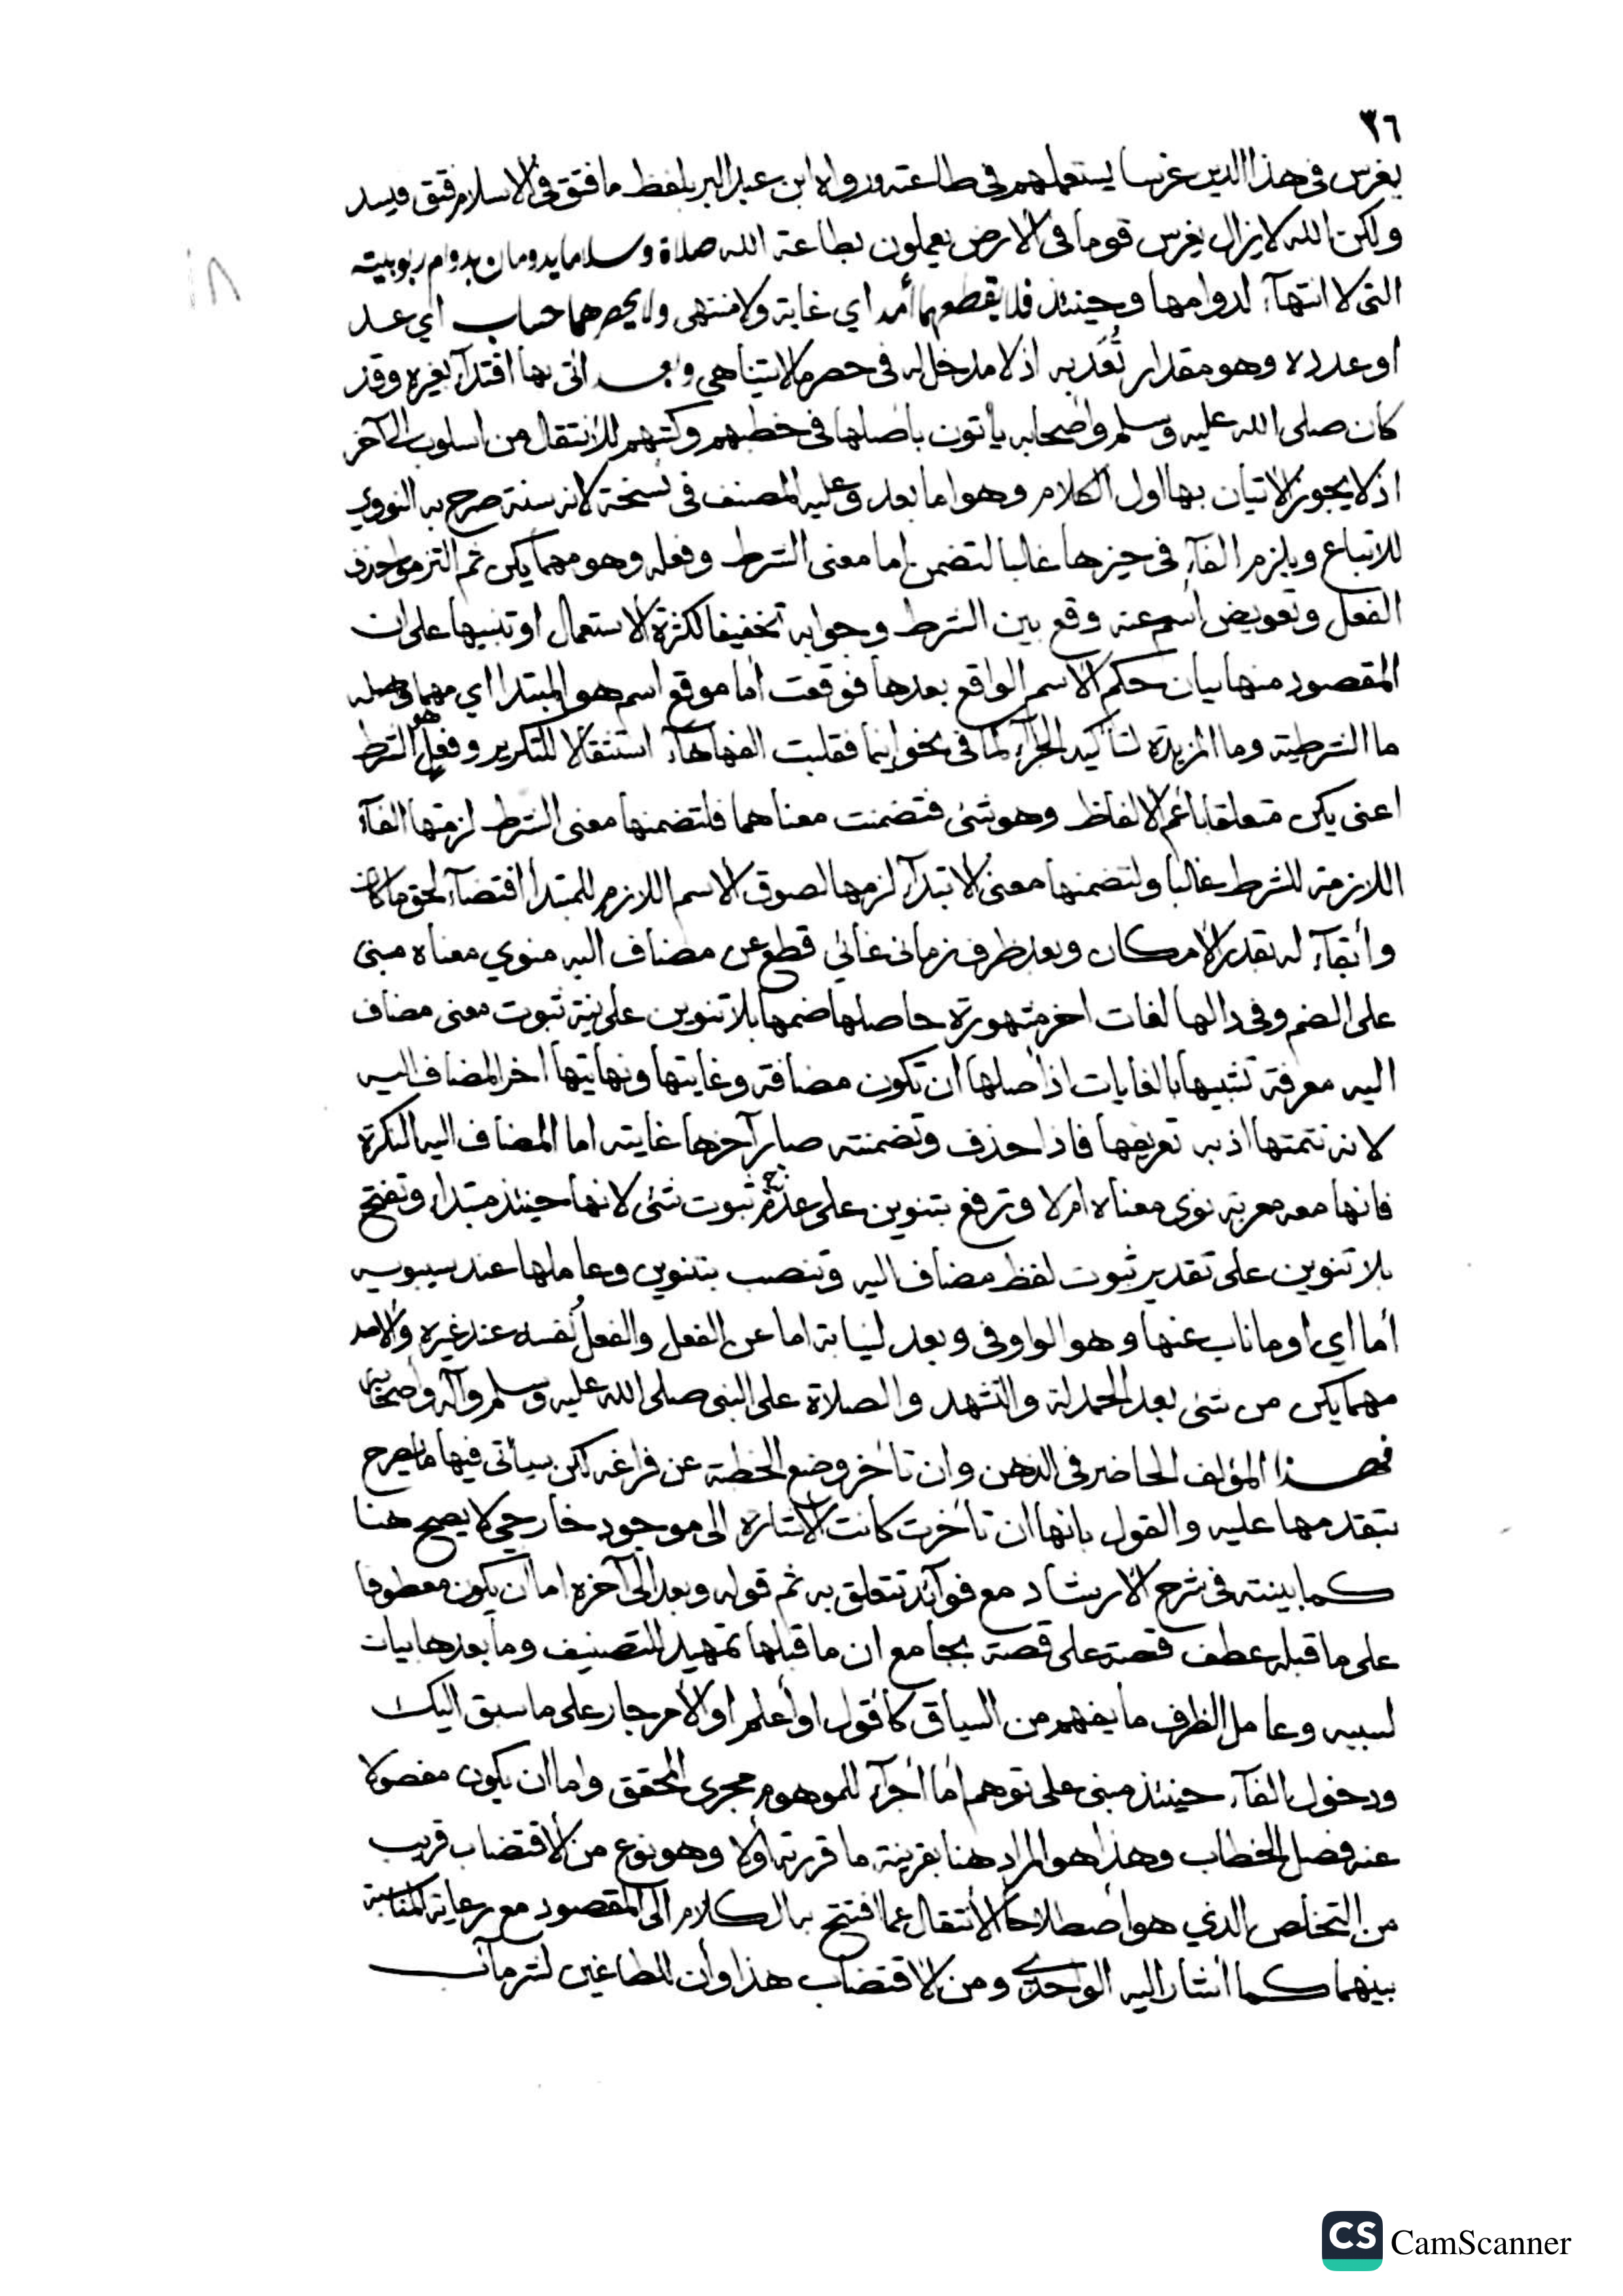 ٣٦
يغرس في هذا الدين غرسا يستعملهم في طاعته ورواه ابن عبد البر بلفظ ما فتق في الاسلام فتق فيسد
ولكن الله لا يزال يغرس قوما في الارض يعملون بطاعة الله صلاة وسلاما يدومان بدوام ربوبيته
التي لا انتهآء لدوامها وحينئذ فلا يقطعهما أمد اي غاية ولا منتهى ولا يحصرهما حساب اي عد
او عدده وهو مقدار تُعَد به اذ لا مدخل له في حصر ما لا يتناهى وبعد اتى بها اقتدآء بغيره وقد
كان صلى الله عليه وسلم وأصحابه يأتون بأصلها في خطبهم وكتبهم للانتقال من اسلوب الى آخر
اذ لا يجوز الاتيان بها اول الكلام وهو اما بعد وعليه المصنف في نسخة لانه سنة صرح به النووي
للاتباع ويلزم الفآء في حيزها غالبا لتضمن اما معنى الشرط وفعله وهو مهما يكن ثم التزموا حذف
الفعل وتعويض اسم عنه وقع بين الشرط وجوابه تخفيفا لكثرة الاستعمال او تنبيها على ان
المقصود منها بيان حكم الاسم الواقع بعدها فوقعت أما موقع اسم هو المبتدا اي مهما في اصله
ما الشرطية وما المزيدة لتأكيد الجزآء كما في نحو اينما فقلبت الفها هآء استثقالا للتكرير وفعل هو الشرط
اعنى يكن متعلقا بأعم الالفاظ وهو شئ فتضمنت معناهما فلتضمنها معنى الشرط لزمتها الفآء
اللازمة للشرط غالبا ولتضمنها معنى الابتدآء لزمها لصوق الاسم اللازم للمبتدا اقتضآء لحق ما كان
وأبقآء له بقدر الامكان وبعد ظرف زماني غائي قطع عن مضاف اليه منوي معناه مبنى
على الضم وفي دالها لغات اخر مشهورة حاصلها ضمها بلا تنوين على نية ثبوت معنى مضاف
اليه معرفة تشبيها بالغايات اذ أصلها ان تكون مضافة وغايتها ونهايتها اخر المضاف اليه
لانه تتمتها اذ به تعريفها فاذا حذف وتضمنته صار آخرها غايته اما المضاف اليه النكرة
فانها معه معربة نوى معناه ام لا وترفع بتنوين على عدم ثبوت شئ لانها حينئذ مبتدا وتفتح
بلا تنوين على تقدير ثبوت لفظ مضاف اليه وتنصب بتنوين وعاملها عند سيبويه
أما اي او ما ناب عنها وهو الواو في وبعد لنيابة اما عن الفعل والفعل نفسه عند غيره والامد
مهما يكن من شئ بعد الحمدلة والتشهد والصلاة على النبى صلى الله عليه وسلم وآله وأصحابه
فهـذا المؤلف الحاضر في الذهن وان تأخر وضع الخطبة عن فراغه لكن سيأتى فيها ما يصرح
بتقدمها عليه والقول بانها ان تأخرت كانت الاشارة الى موجود خارجي لا يصح هنا
كما بينته في شرح الارشاد مع فوآئد تتعلق به ثم قوله وبعد الى آخره اما ان يكون معطوفا
على ما قبله عطف قصة على قصة بجامع ان ما قبلها تمهيد للتصنيف وما بعدها بيان
لسببه وعامل الظرف ما يفهم من السياق كأقول او أعلم او الأمر جار على ما سبق اليك
ودخول الفآء حينئذ مبنى على توهم أما أجرآء للموهوم مجرى المحقق واما ان يكون مفصولا
عنه فصل الخطاب وهذا هو المراد هنا بقرينة ما قررته أولا وهو نوع من الاقتضاب قريب
من التخلص الذي هو أصطلاحا الأنتقال عما افتتح به الكلام الى المقصود مع رعاية المناسبة
بينهما كما أشار اليه الواحدي ومن الاقتضاب هذا وأن للطاغين لشر مآب
CS CamScanner